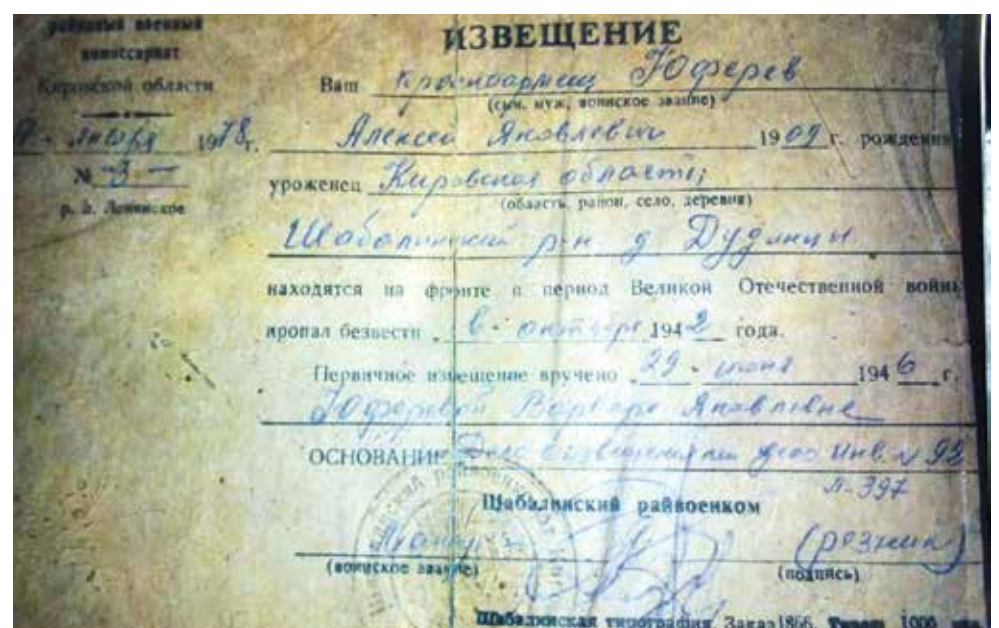 районный военный
комиссариат
Кировской области
января 1978 г.
№ -3-
р. п. Ленинское
ИЗВЕЩЕНИЕ
Ваш красноармеец Юферев
(сын, муж, воинское звание)
Алексей Яковлевич 1909 г. рождения
уроженец Кировской области,
(область, район, село, деревня)
Шабалинский р-н д Дудинцы
находятся на фронте в период Великой Отечественной войны
пропал безвести в - октябре 1942 года.
Первичное извещение вручено 29 - июня 1946 г.
Юферевой Варваре Яковлевне
ОСНОВАНИЕ Дело с извещениями Инв. № 92
л-397
Шабалинский райвоенком
майор (розник)
(воинское звание) (подпись)
Шабалинская типография. Заказ 1866. Тираж 1000